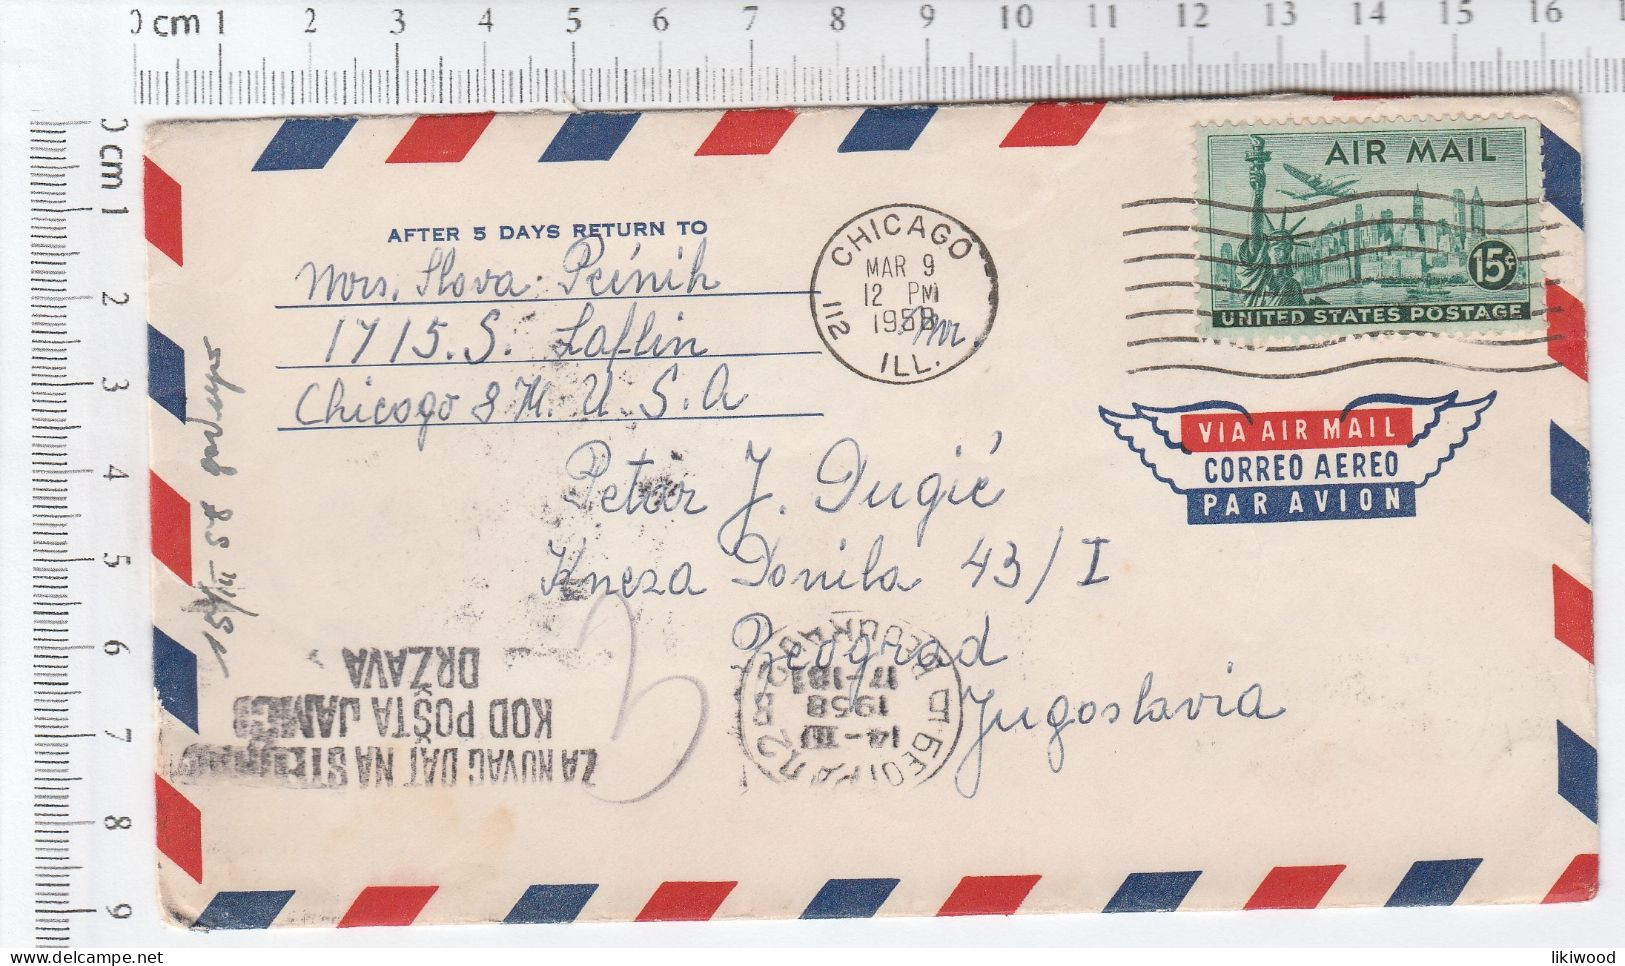 0 cm 1 2 3 4 5 6 7 8 9 10 11 12 13 14 15 16
0 cm 1 2 3 4 5 6 7 8 9
AIR MAIL
15¢
UNITED STATES POSTAGE
CHICAGO
MAR 9
12 PM
1958
112
ILL.
AFTER 5 DAYS RETURN TO
Mrs. Slova Pcinih
1715. S. Laflin
Chicago 8 Ill. U.S.A
VIA AIR MAIL
CORREO AEREO
PAR AVION
Petar J. Dugić
Kneza Danila 43/I
Beograd
Jugoslavia
ZA NOVAC DAT NA
KOD POŠTA JAMČI
DRŽAVA
БЕОГРАД 2
14-III
1958
17-18
BEOGRAD 2
15/III 58